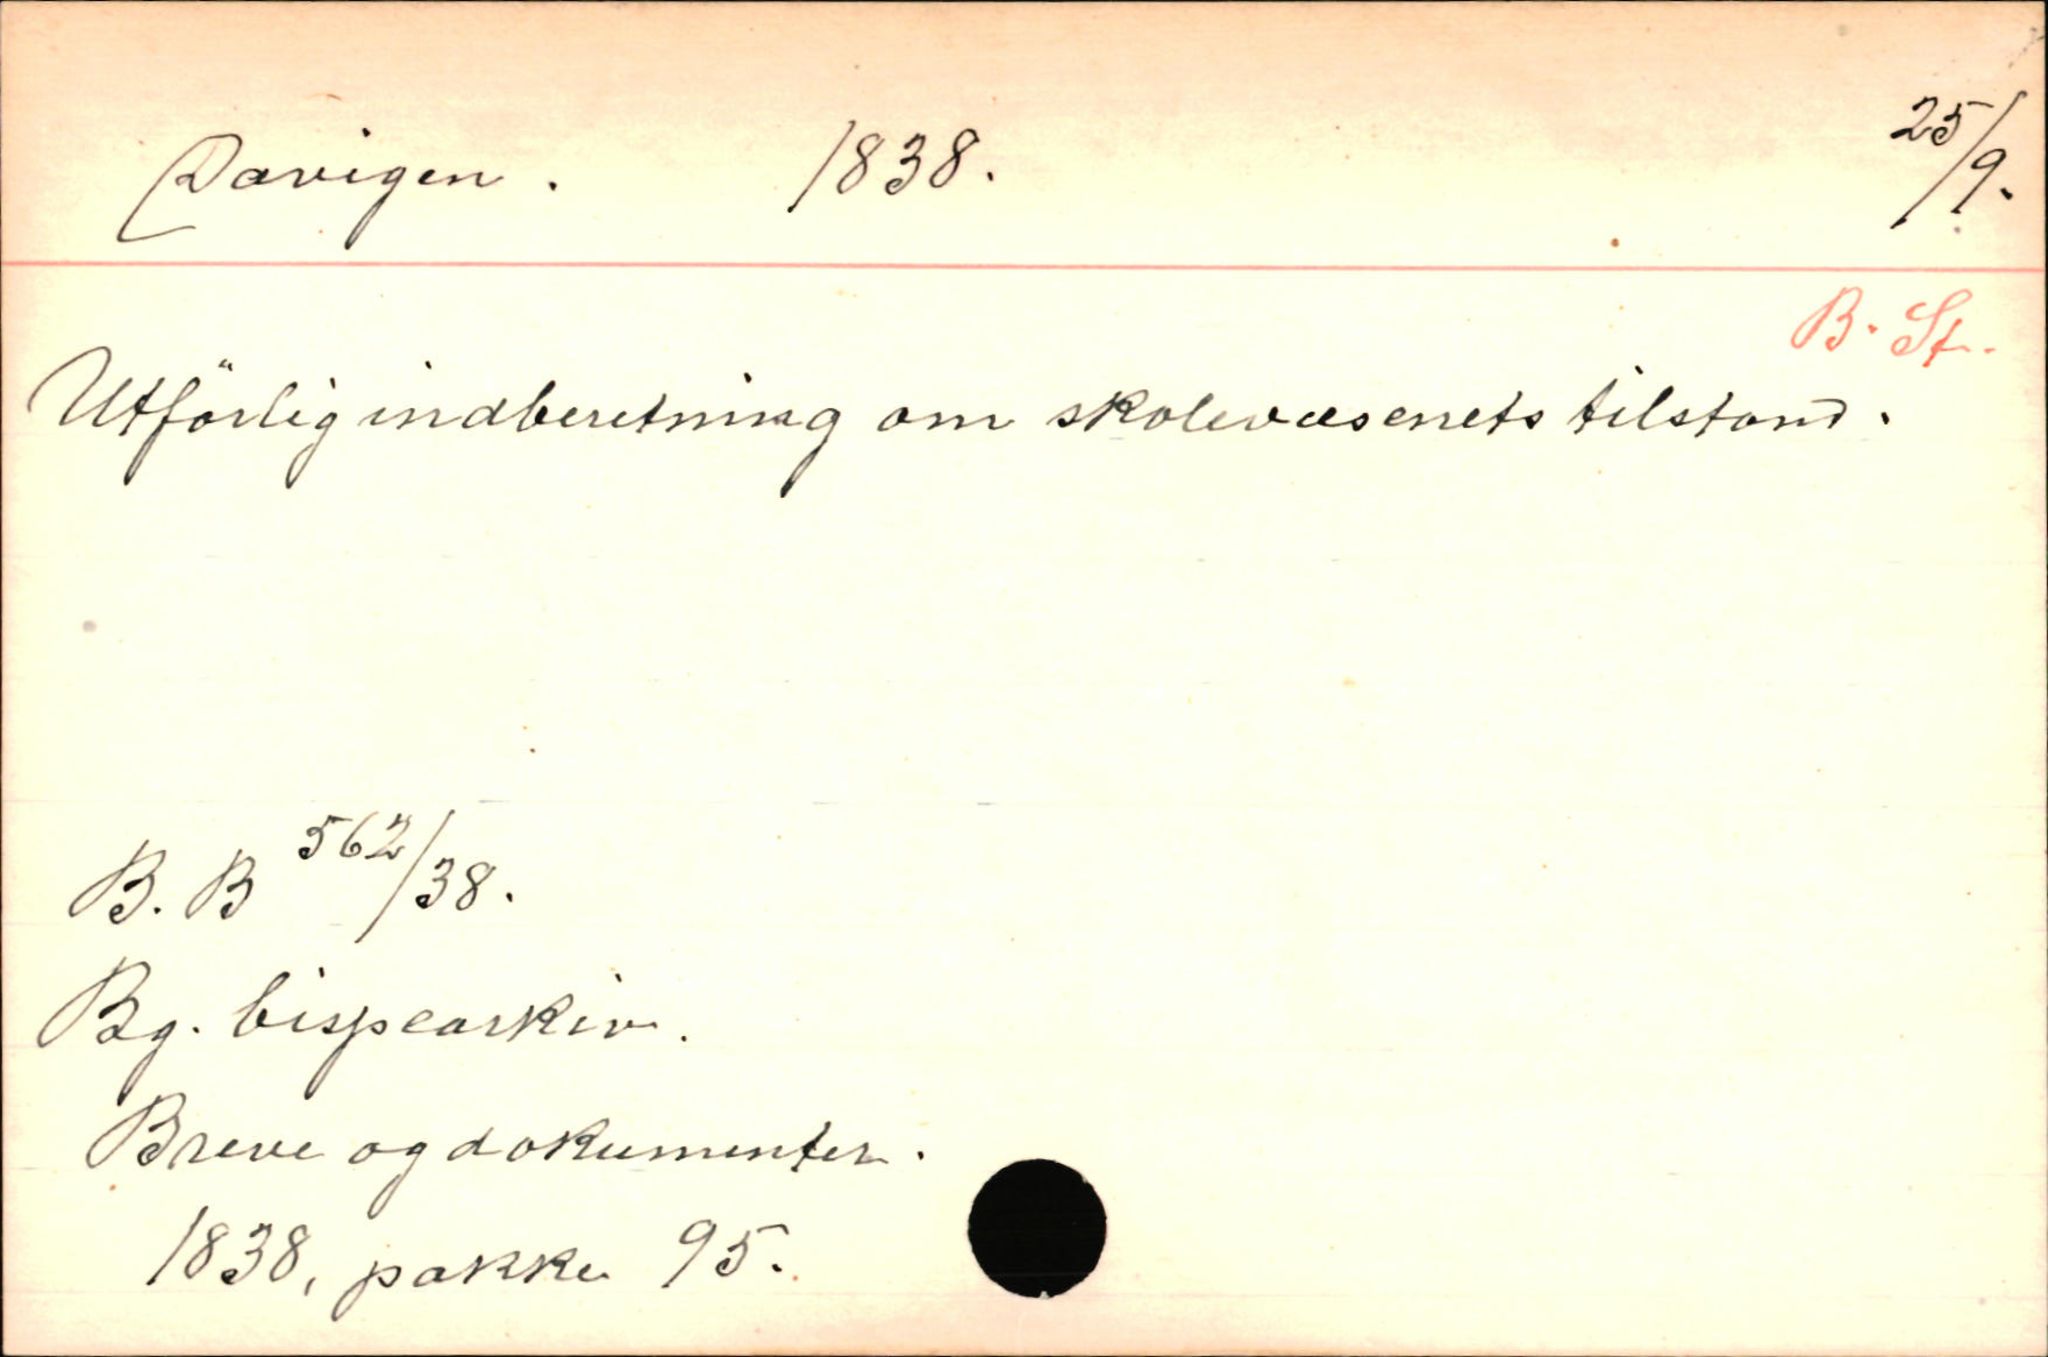 Davigen. 1838. 25/9.
B. St.
Utförlig indberetning om skolevæsenets tilstand.
B. B 562/38.
Bg. bispearkiv.
Breve og dokumenter.
1838, pakke 95.